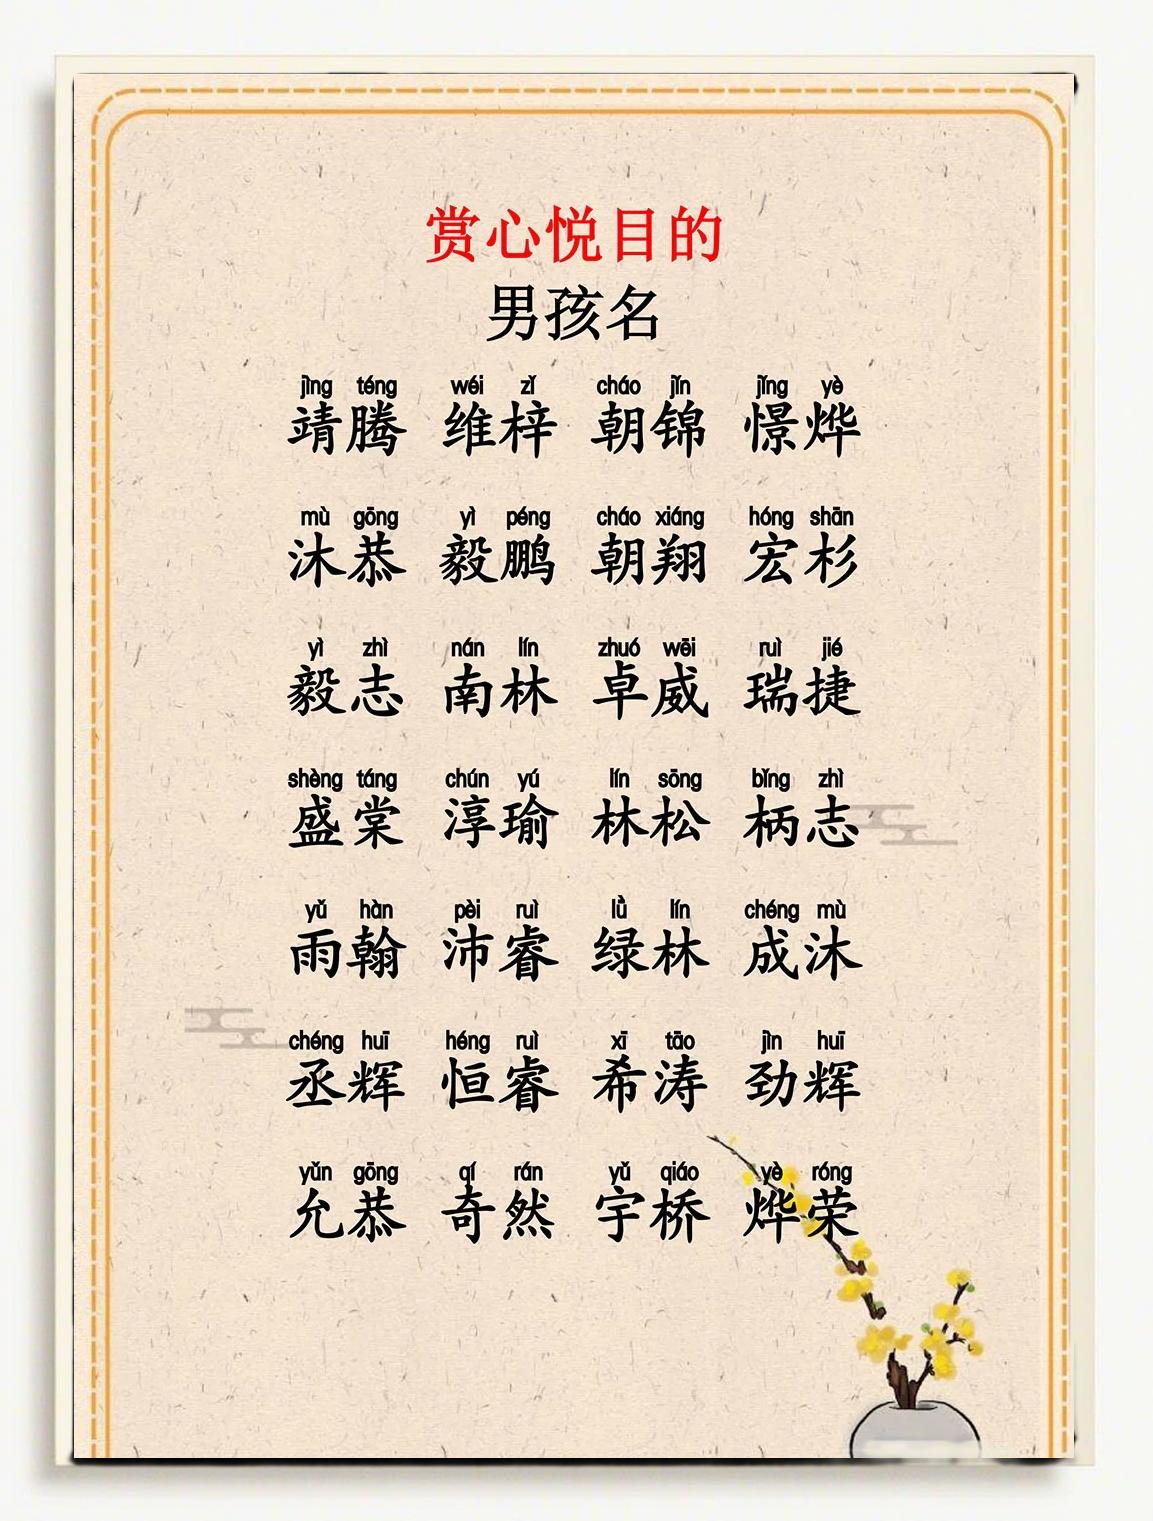 赏心悦目的
男孩名
jìng téng wéi zǐ cháo jǐn jǐng yè
靖腾 维梓 朝锦 憬烨
mù gōng yì péng cháo xiáng hóng shān
沐恭 毅鹏 朝翔 宏杉
yì zhì nán lín zhuó wēi ruì jié
毅志 南林 卓威 瑞捷
shèng táng chún yú lín sōng bǐng zhì
盛棠 淳瑜 林松 柄志
yǔ hàn pèi ruì lǜ lín chéng mù
雨翰 沛睿 绿林 成沐
chéng huī héng ruì xī tāo jìn huī
丞辉 恒睿 希涛 劲辉
yǔn gōng qí rán yǔ qiáo yè róng
允恭 奇然 宇桥 烨荣